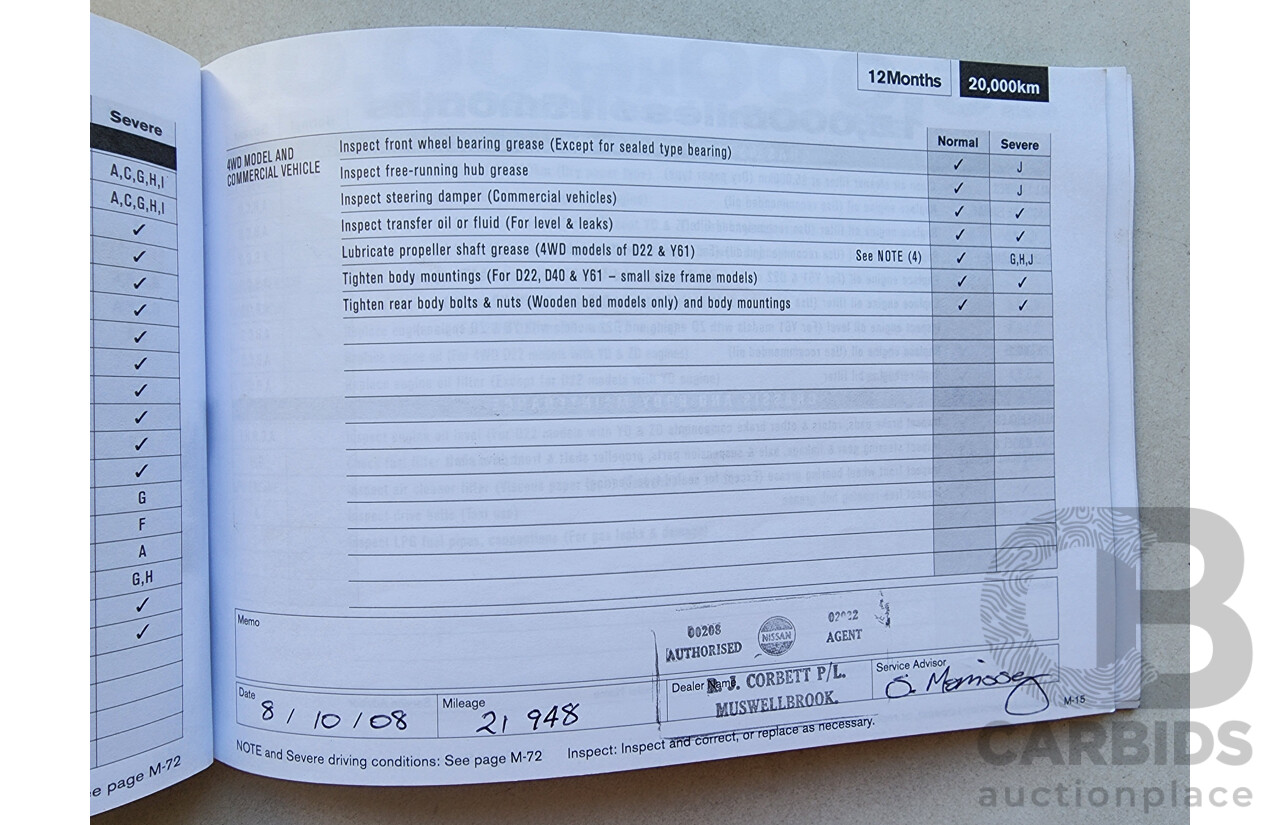 Severe
A,C,G,H,I
A,C,G,H,I
✓
✓
✓
✓
✓
✓
✓
✓
✓
✓
G
F
A
G,H
✓
✓
e page M-72
12Months 20,000km
Normal Severe
4WD MODEL AND
COMMERCIAL VEHICLE
Inspect front wheel bearing grease (Except for sealed type bearing) ✓ J
Inspect free-running hub grease ✓ J
Inspect steering damper (Commercial vehicles) ✓ ✓
Inspect transfer oil or fluid (For level & leaks) ✓ ✓
Lubricate propeller shaft grease (4WD models of D22 & Y61) See NOTE (4) ✓ G,H,J
Tighten body mountings (For D22, D40 & Y61 – small size frame models) ✓ ✓
Tighten rear body bolts & nuts (Wooden bed models only) and body mountings ✓ ✓
Memo
00208
AUTHORISED NISSAN AGENT
Date 8 / 10 / 08
Mileage 21 948
Dealer Name
J. CORBETT P/L.
MUSWELLBROOK.
Service Advisor
M-15
NOTE and Severe driving conditions: See page M-72 Inspect: Inspect and correct, or replace as necessary.
CB
CARBIDS
auctionplace